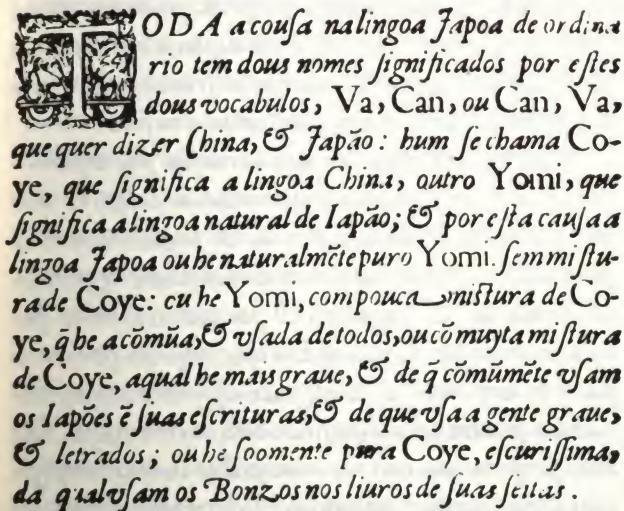 TODA a couſa na lingoa Japoa de ordina
rio tem dous nomes ſignificados por eſtes
dous vocabulos, Va, Can, ou Can, Va,
que quer dizer China, & Japão: hum ſe chama Co-
ye, que ſignifica a lingoa China, outro Yomi, que
ſignifica a lingoa natural de Iapão; & por eſta cauſa a
lingoa Japoa ou he naturalmẽte puro Yomi. ſem miſtu-
ra de Coye: ou he Yomi, com pouca miſtura de Co-
ye, q̃ he a cõmũa, & vſada de todos, ou cõ muyta miſtura
de Coye, a qual he mais graue, & de q̃ cõmũmẽte vſam
os Iapões ẽ ſuas eſcrituras, & de que vſa a gente graue,
& letrados; ou he ſoomente pura Coye, eſcuriſſima,
da qual vſam os Bonzos nos liuros de ſuas ſeitas.